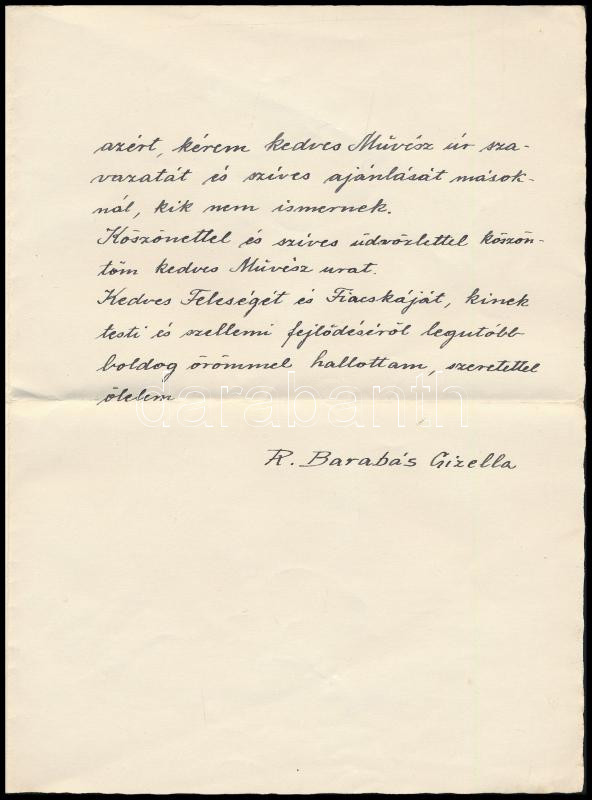 azért, kérem kedves Művész úr sza-
vazatát és szíves ajánlását mások-
nál, kik nem ismernek.
Köszönettel és szíves üdvözlettel köszön-
töm kedves Művész urat.
Kedves Feleségét és Fiacskáját, kinek
testi és szellemi fejlődéséről legutóbb
boldog örömmel hallottam, szeretettel
ölelem
darabanth
R. Barabás Gizella